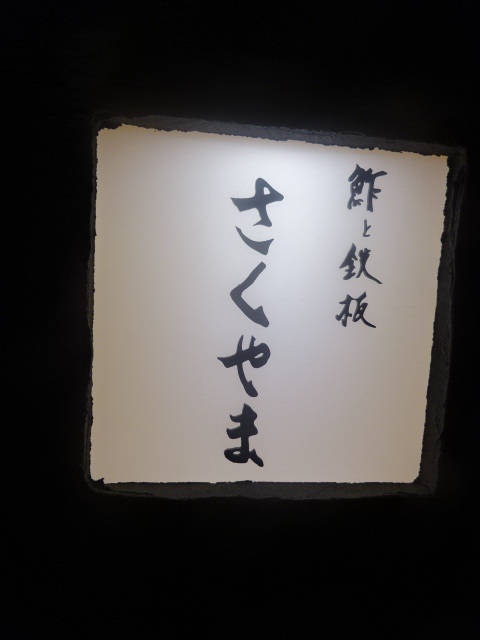 鮓と鉄板
さくやま